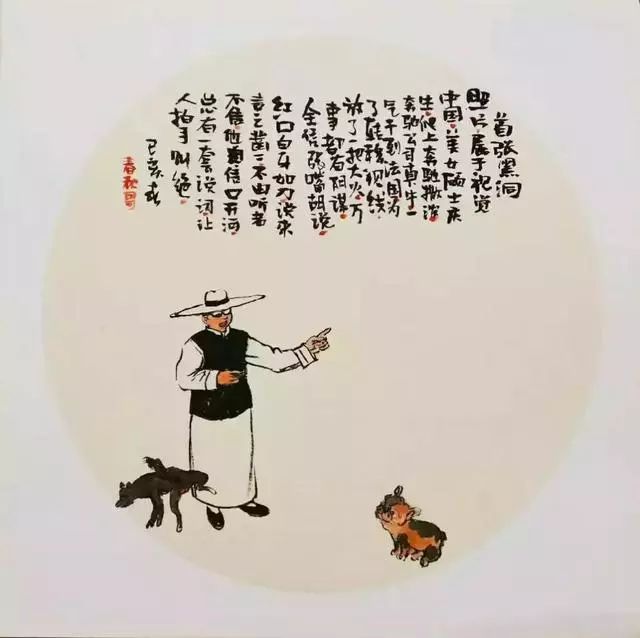 首张黑洞
照片属于视觉
中国。美女硕士
生爬上奔驰撒泼。
奔驰公司牛一
气干到法国为
了转移视线。
放了一把大火万
事都有阴谋。
全凭张嘴胡说。
红口白牙如说来
言之凿凿不由听者
不信他信口开河
总有一套说词让
人拍手叫绝。
己亥春